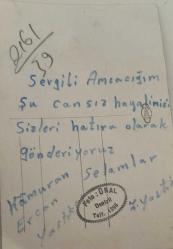 2161
39
Sevgili Amcacığım
Şu cansız hayalimizi
Sizleri hatıra olarak
gönderiyoruz
Kâmuran Selamlar
Ercan
Foto: ÜNAL